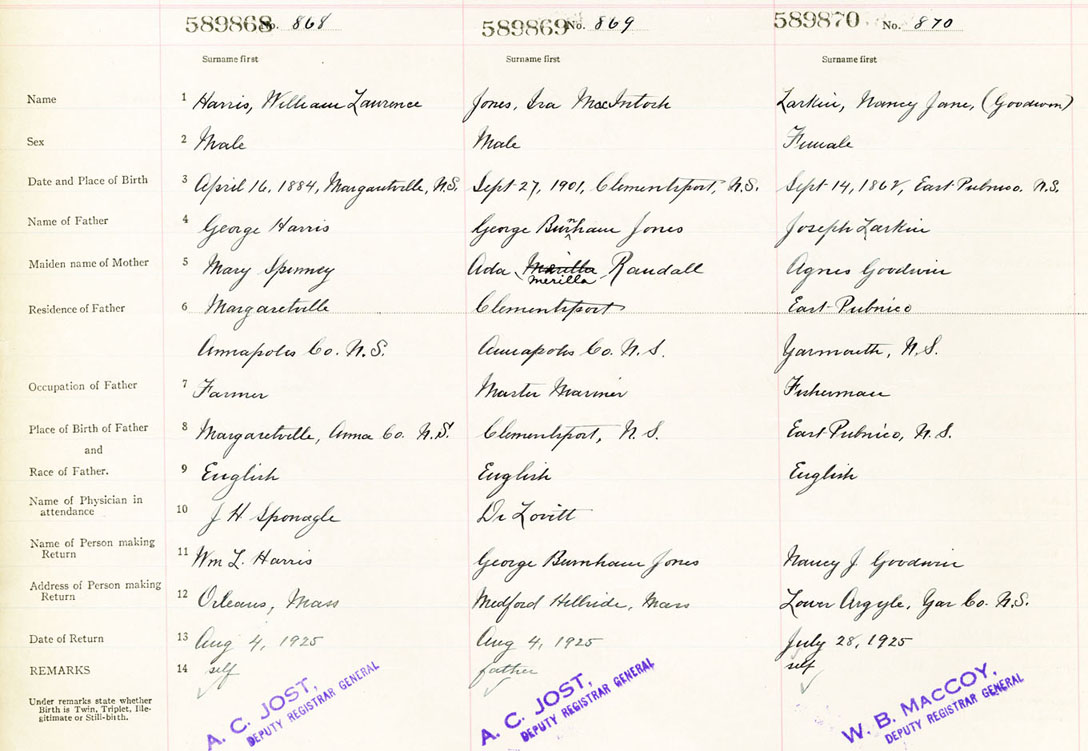 589868 No. 868 589869 No. 869 589870 No. 870
Surname first Surname first Surname first
Name 1 Harris, William Lawrence Jones, Ira MacIntosh Larkin, Nancy Jane, (Goodwin)
Sex 2 Male Male Female
Date and Place of Birth 3 April 16, 1884, Margaretville, N.S. Sept 27, 1901, Clementsport, N.S. Sept 14, 1862, East Pubnico. N.S.
Name of Father 4 George Harris George Burnham Jones Joseph Larkin
Maiden name of Mother 5 Mary Spinney Ada Merilla Randall Agnes Goodwin
Residence of Father 6 Margaretville Clementsport East Pubnico
Annapolis Co. N.S. Annapolis Co. N.S. Yarmouth, N.S.
Occupation of Father 7 Farmer Master Mariner Fisherman
Place of Birth of Father 8 Margaretville, Anna Co. N.S. Clementsport, N.S. East Pubnico, N.S.
and
Race of Father. 9 English English English
Name of Physician in
attendance 10 J H Sponagle Dr Lovitt
Name of Person making
Return 11 Wm L. Harris George Burnham Jones Nancy J. Goodwin
Address of Person making
Return 12 Orleans, Mass Medford Hillside, Mass Lower Argyle, Yar Co. N.S.
Date of Return 13 Aug 4, 1925 Aug 4, 1925 July 28, 1925
REMARKS 14 self father self
Under remarks state whether
Birth is Twin, Triplet, Ille-
gitimate or Still-birth.
A. C. JOST,
DEPUTY REGISTRAR GENERAL
A. C. JOST,
DEPUTY REGISTRAR GENERAL
W. B. MACCOY,
DEPUTY REGISTRAR GENERAL